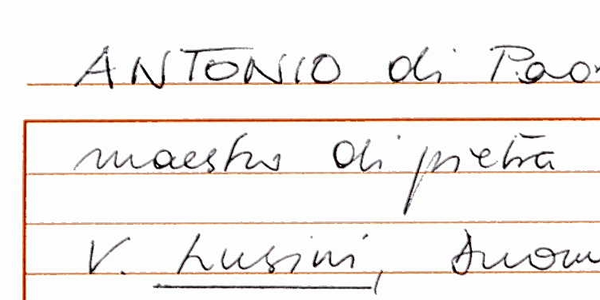 ANTONIO di Pao
maestro di pietra
V. Lusini, Duom